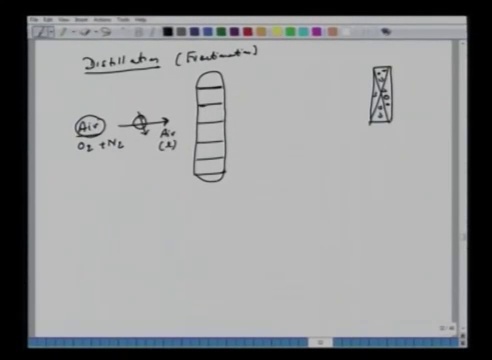 File Edit View Insert Actions Tools Help
Distillation (Fractionation)
Air
Air
(l)
O2 + N2